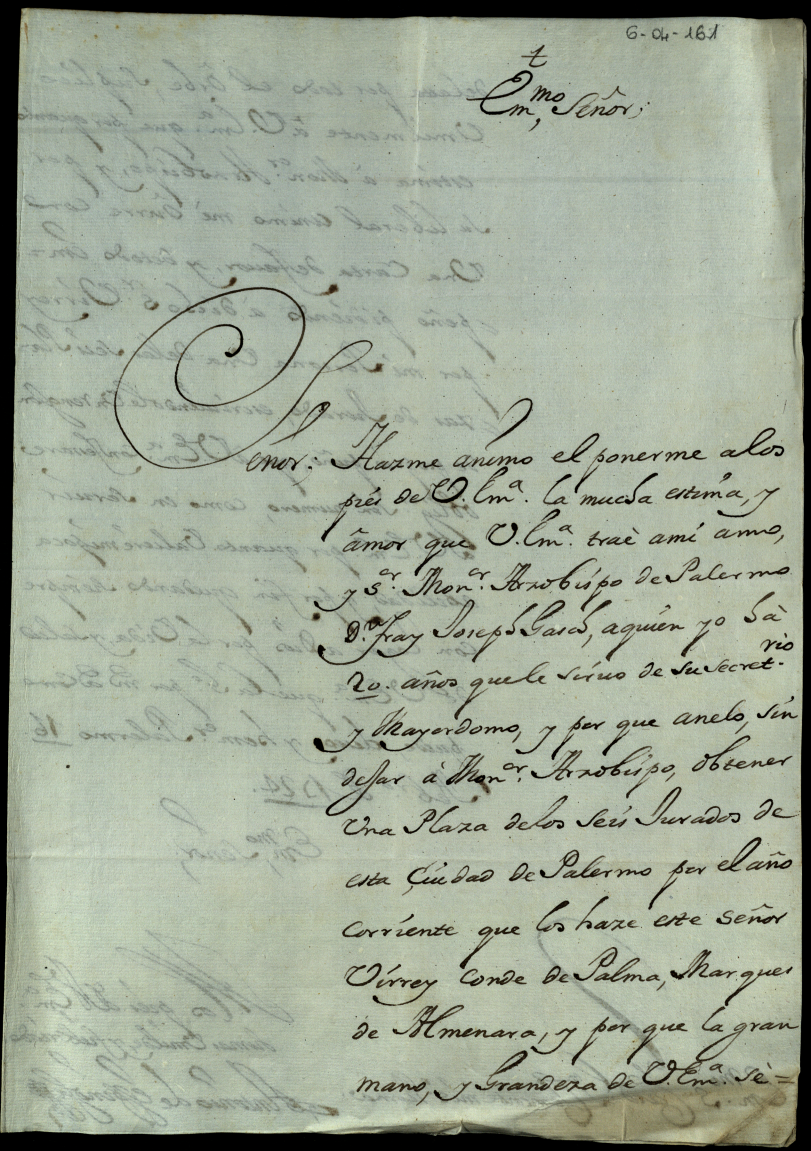 6-04-161
†
Em.mo Señor;
Señor; Hazme anímo el ponerme alos
piés de V. Em.ª la mucha estima, y
âmor que V. Em.ª traè amí amo,
y S.or Mon.or Arzobíspo de Palermo
D.n Fray Joseph Gasch, aquíen yo hà
20. años quele siruo de su Secret.rio
y Mayordomo, y por que anelo, sín
dejar â Mon.or Arzobíspo, obtener
Vna Plaza delos Seís Jurados de
esta Çíudad de Palermo por el año
corríente que los haze este Señor
Vírrey Conde de Palma, Marques
de Almenara, y por que la gran
mano, y Grandeza de V. Em.ª Sè=